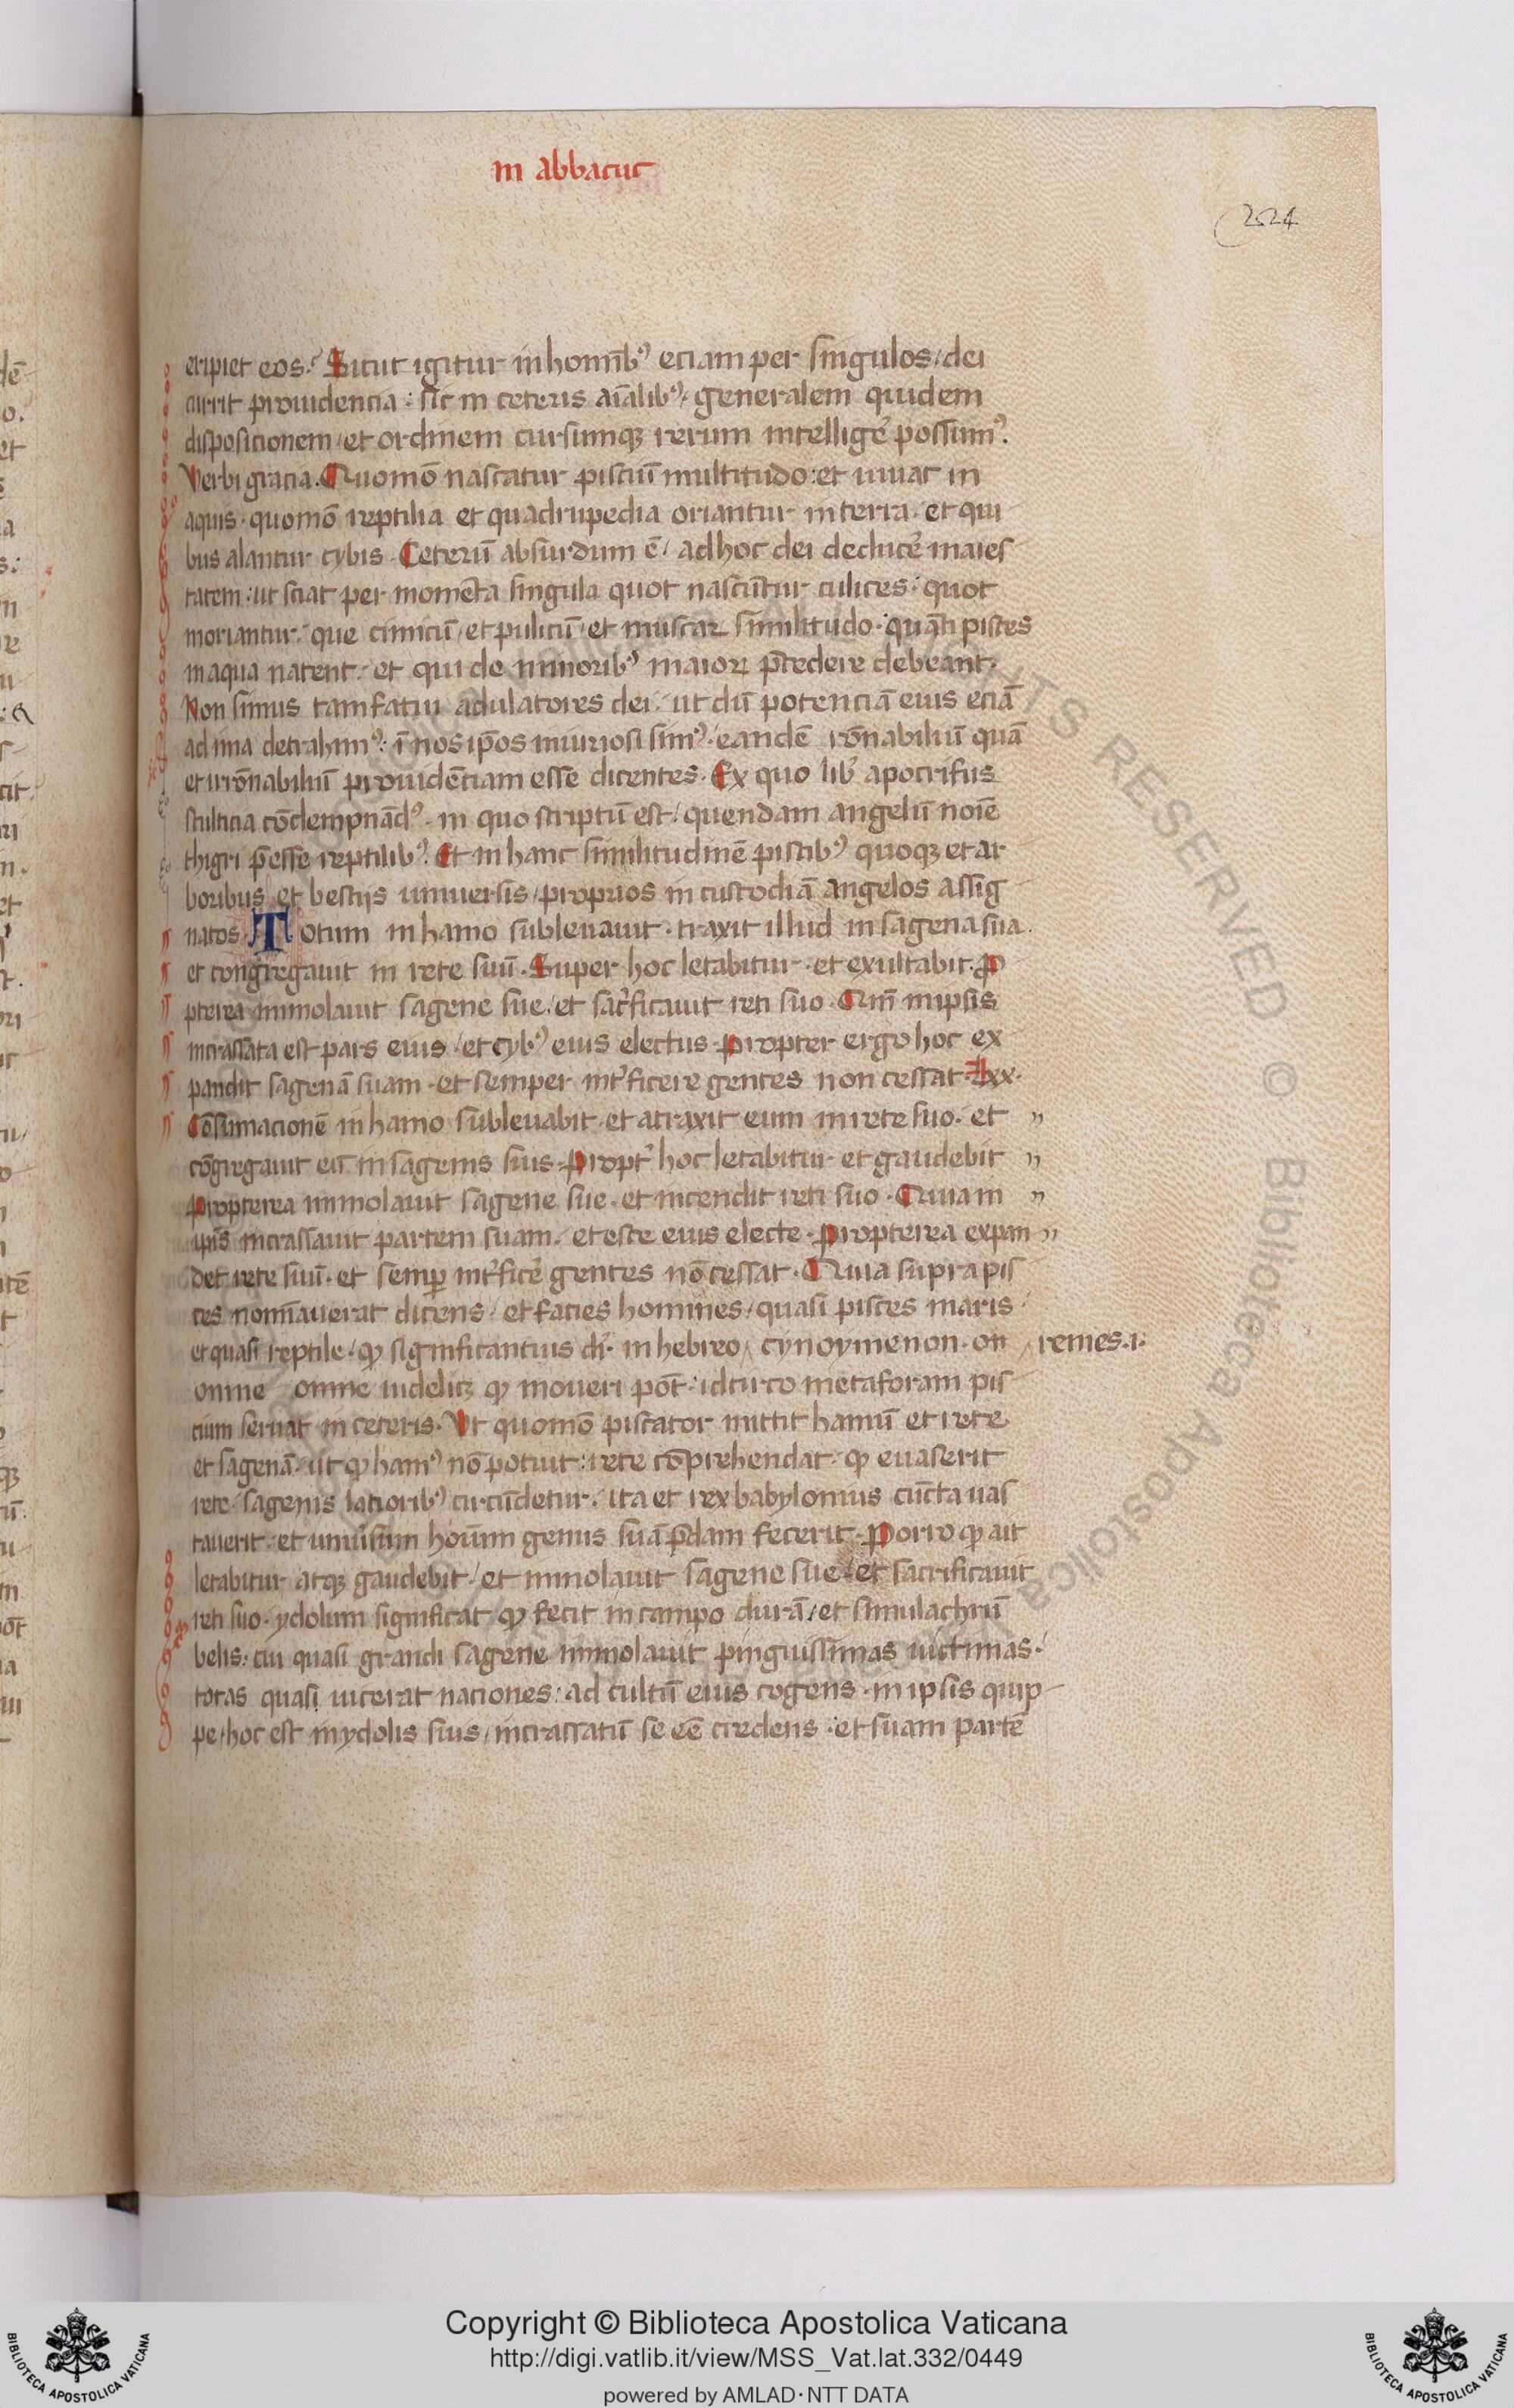 in abbacuc
224
eripiet eos. Sicut igitur in hom̅ibꝰ eciam per singulos dei
currit prouidencia: sic in ceteris ai̅alibꝰ generalem quidem
disposicionem et ordinem cursumqꝫ rerum intellige̓ possimꝰ.
Verbi gracia. Quomo̅ nascatur pisciu̅ multitudo: et uiuat in
aquis. quomo̅ reptilia et quadrupedia oriantur in terra. et qui
bus alantur cybis. Ceteru̅ absurdum e̅ ad hoc dei deduce̓ maies
tatem: ut sciat per mome̅ta singula quot nascu̅tur culices: quot
moriantur. que cimicu̅ et pulicu̅ et muscaꝝ similitudo. qua̅ti pisces
in aqua natent. et qui de minoribꝰ maioꝝ p̅cedere debeant.
Non simus tam fatui adulatores dei. ut du̅ potencia̅ eius ecia̅
ad ima detrahimꝰ: i̅ nos ip̅os iniuriosi simꝰ. eande̅ ro̅nabiliu̅ qua̅
et irro̅nabiliu̅ prouide̅ciam esse dicentes. Ex quo lib̓ apocrifus
stulticia co̅dempna̅dꝰ. in quo scriptu̅ est quendam angelu̅ noi̅e
thigri p̅esse reptilibꝰ. Et in hanc similitudine̅ piscibꝰ quoqꝫ et ar
boribus et bestijs uniuersis proprios in custodia̅ angelos assig
natos. Totum in hamo subleuauit. traxit illud in sagena sua.
et congregauit in rete suu̅. Super hoc letabitur. et exultabit. Pro
pterea immolauit sagene sue. et sac̓ficauit reti suo. Qm̅ in ipsis
incrassata est pars eius. et cybꝰ eius electus. Propter ergo hoc ex
pandit sagena̅ suam. et semper int̓ficere gentes non cessat. Lxx.
Co̅sumacione̅ in hamo subleuabit. et atraxit eum in rete suo. et ”
co̅gregauit eu̅ in sagenis suis. Propt̓ hoc letabitur et gaudebit ”
Propterea immolauit sagene sue. et incendit reti suo. Quia in ”
ip̅is incrassauit partem suam. et esce eius electe. Propterea expan ”
det rete suu̅. et semꝑ int̓fice̓ gentes no̅ cessat. Quia supra pis
ces nomi̅auerat dicens. et facies homines quasi pisces maris.
et quasi reptile. qđ significantius dr̅. in hebreo cynoymenon. on remes .i.
omne omne uidelicꝫ qđ moueri pot̅. idcirco metaforam pis
cium seruat in ceteris. Ut quomo̅ piscator mittit hamu̅ et rete
et sagena̅. ut qđ hamꝰ no̅ potuit: rete co̅prehendat. qđ euaserit
rete sagenis latioribꝰ circu̅detur. ita et rex babylonius cu̅cta uas
tauerit. et uniu̓sum hoi̅um genus sua̅ p̅dam fecerit. Porro qđ ait
letabitur atqꝫ gaudebit. et immolauit sagene sue. et sacrificauit
reti suo. ydolum significat qđ fecit in campo dura̅. et simulachru̅
belis: cui quasi grandi sagene immolauit pinguissimas uictimas.
totas quasi uicerat naciones: ad cultu̅ eius cogens. in ipsis quip
pe. hoc est in ydolis suis. incrassatu̅ se ee̅ credens. et suam parte̅
Copyright © Biblioteca Apostolica Vaticana
http://digi.vatlib.it/view/MSS_Vat.lat.332/0449
powered by AMLAD·NTT DATA